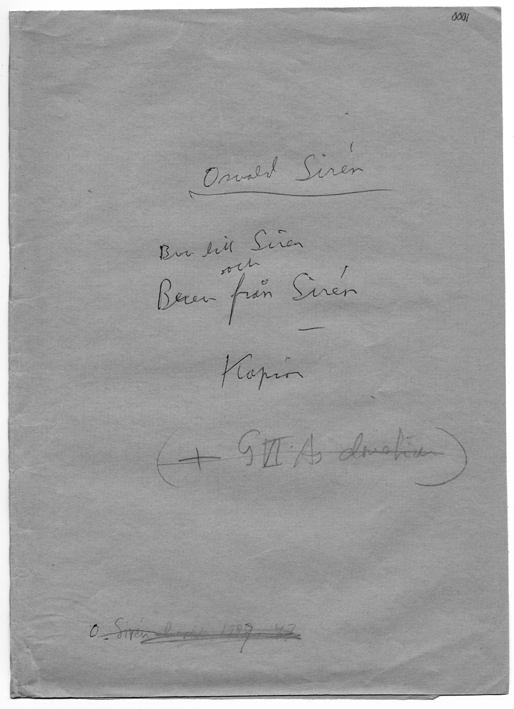 0001
Osvald Sirén
Brev till Sirén
och
Breven från Sirén
Kopior
(+ G VI As donation)
O. Sirén